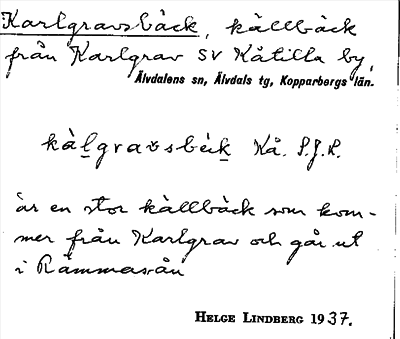 Karlgravsbäck, källbäck
från Karlgrav SV Kåtilla by,
Älvdalens sn, Älvdals tg, Kopparbergs län.
kàl̲gravsbèk̲ Kå. P.J.R.
är en stor källbäck som kom-
mer från Karlgrav och går ut
i Rämmasån
HELGE LINDBERG 1937.